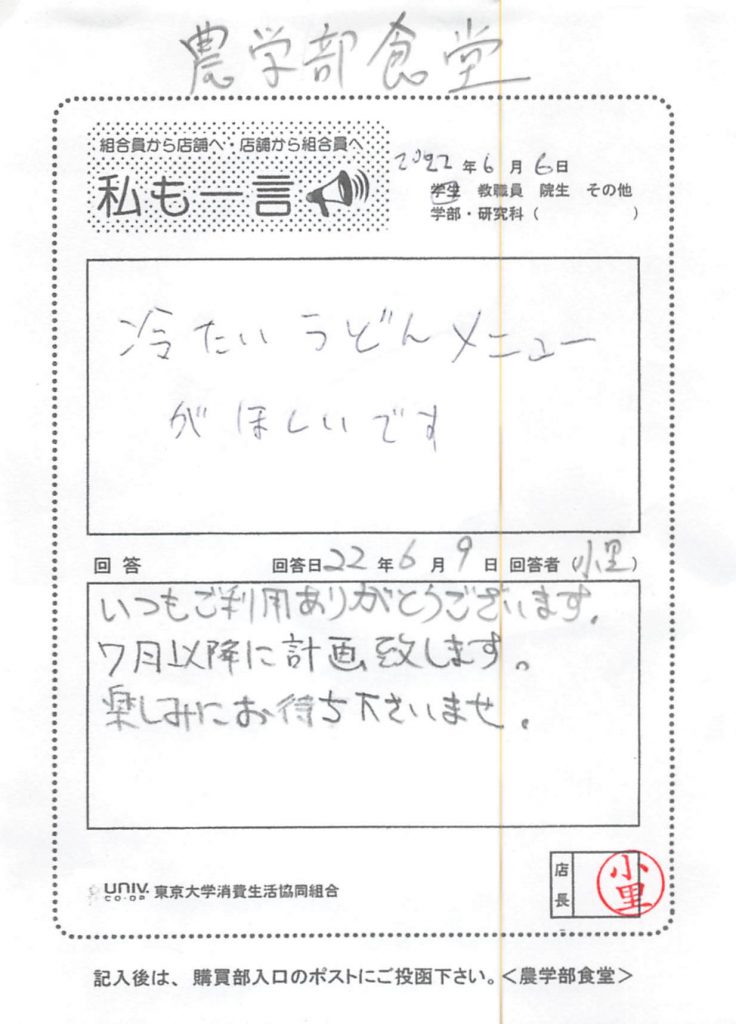 農学部食堂
組合員から店舗へ・店舗から組合員へ
私も一言
2022年6月6日
学生 教職員 院生 その他
学部・研究科（ ）
冷たいうどんメニュー
がほしいです
回答 回答日22年6月9日 回答者（小里）
いつもご利用ありがとうございます。
7月以降に計画致します。
楽しみにお待ち下さいませ。
店長 小里
UNIV. CO-OP 東京大学消費生活協同組合
記入後は、購買部入口のポストにご投函下さい。＜農学部食堂＞